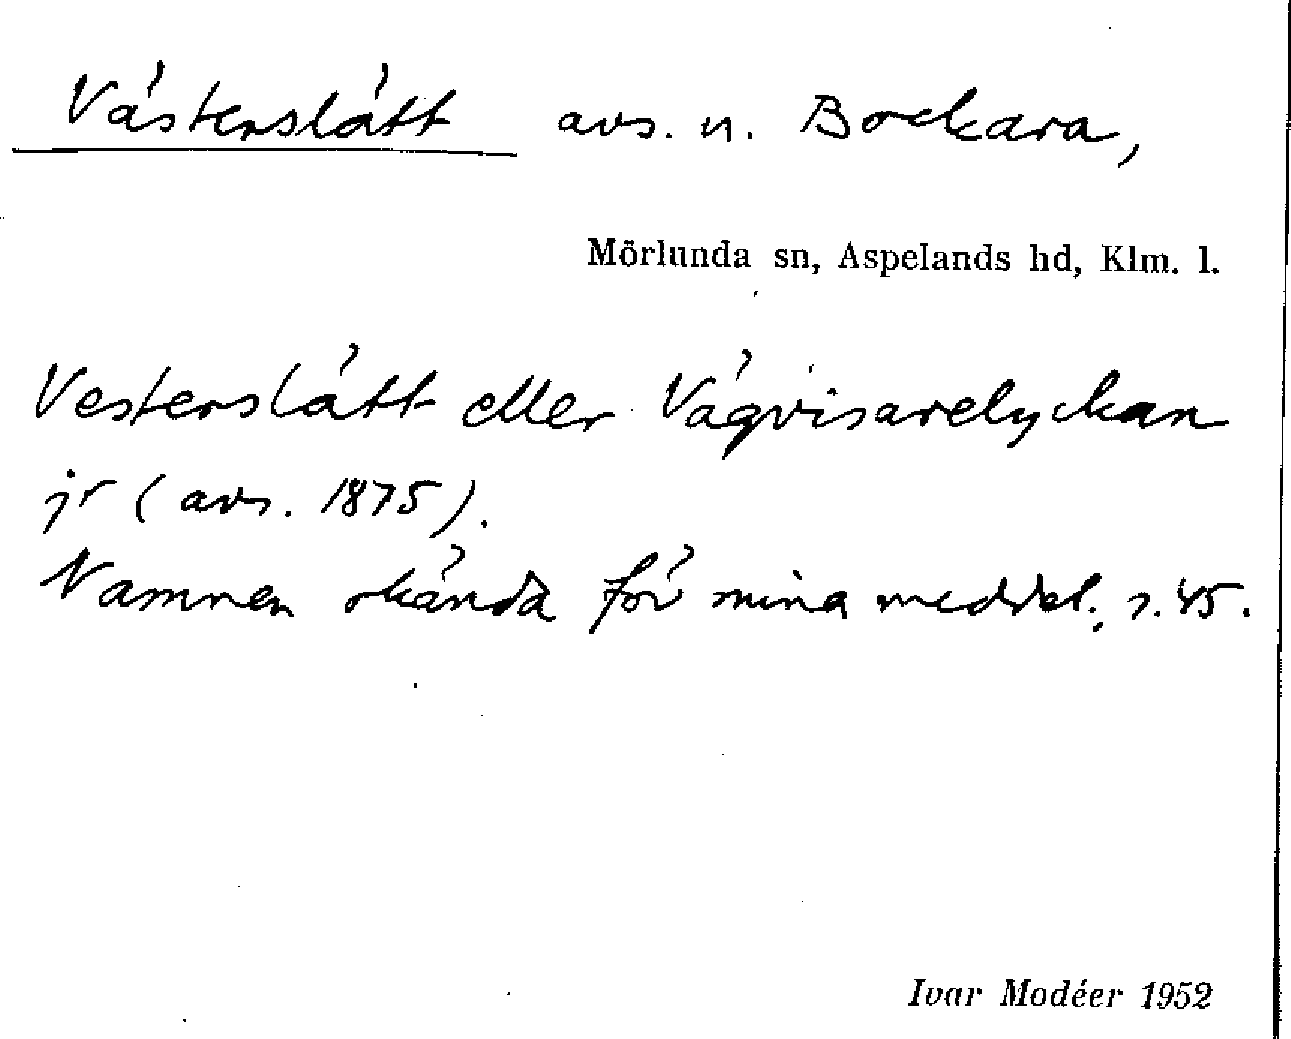 Västerslätt avs. n. Bockara,
Mörlunda sn, Aspelands hd, Klm. l.
Vesterslätt eller Vägvisarelyckan
jr (avs. 1875).
Namnen okända för mina meddel. s. 45.
Ivar Modéer 1952